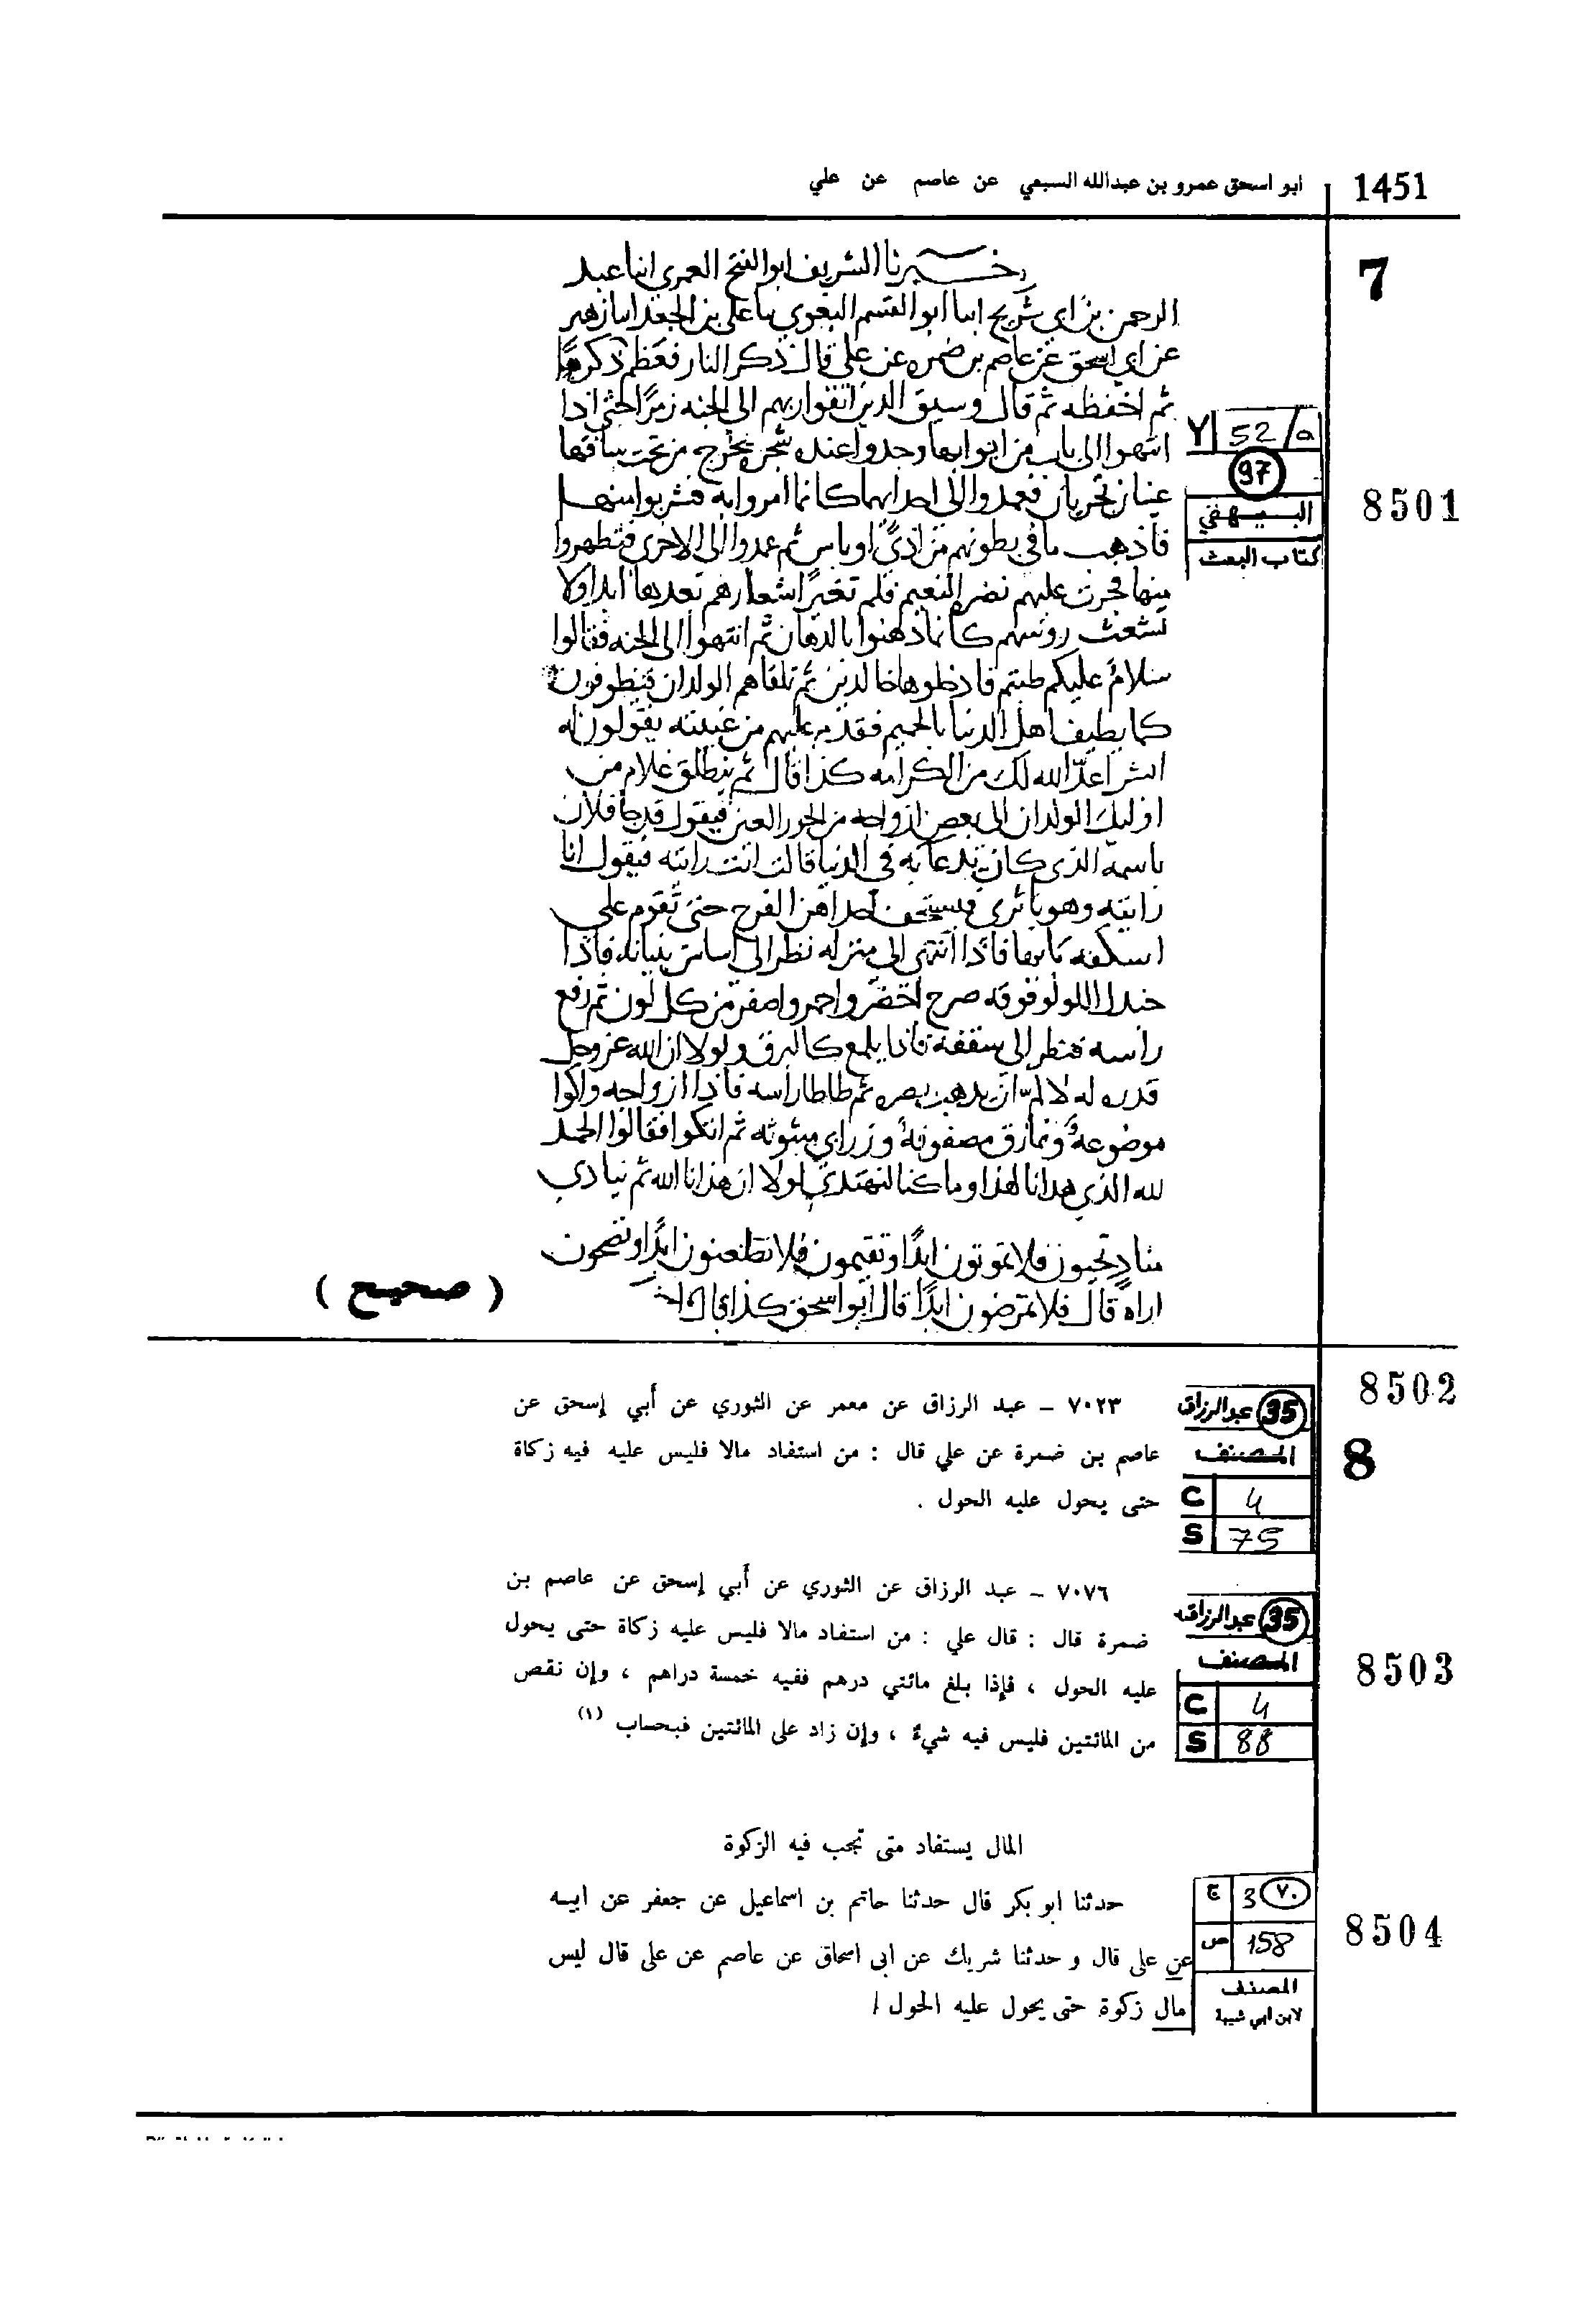 1451
ابو اسحق عمرو بن عبدالله السبعي عن عاصم عن علي
7
اخبرنا الشريف ابو الفتح العمري انبا عبد
الرحمن بن ابي شريح انبا ابو القسم البغوي نبا علي بن الجعد انبا زهير
عن ابي اسحق عن عاصم بن ضمره عن علي قال ذكر النار فعظم ذكرها
ثم قال وسيق الذين اتقوا ربهم الى الجنه زمرًا حتى اذا
انتهوا الى باب من ابوابها وجدوا عنده شجره يخرج من تحت ساقها
عينان تجريان فعمدوا الى احداهما كانما امروا به فشربوا منها
فاذهب ما في بطونهم من اذىً او باس ثم عمدوا الى الاخرى فتطهروا
منها فجرت عليهم نضره النعيم فلم تغير اشعارهم بعدها ابدا ولا
تشعث روسهم كانما دهنوا بالدهان ثم انتهوا الى الجنه فقالوا
سلامٌ عليكم طبتم فادخلوها خالدين ثم تلقاهم الولدان فيطوفون
كما يطيف اهل الدنيا بالحميم فقدم عليهم من غيبته يقولون له
ابشر اعدّ الله لك من الكرامه كذا قال ثم ينطلق غلام من
اوليك الولدان الى بعض ازواجه من الحور العين فيقول قد جا فلان
باسمه الذي كان يدعا به في الدنيا قالت انت رايته فيقول انا
رايته وهو باثري فيستخف احداهن الفرح حتى تقوم على
اسكفه بابها فاذا انتهى الى منزله نظر الى اساس بنيانه فاذا
جندل اللولو فوقه صرح اخضر واحمر واصفر من كل لون ثم رفع
راسه فنظر الى سقفه فاذا يلمع كالبرق ولولا ان الله عز وجل
قدره له لالمّ ان يذهب بصره ثم طاطا راسه فاذا ازواجه واكوا
موضوعهٌ ونمارق مصفوفهٌ وزرابي مبثوثه ثم اتكوا فقالوا الحمد
لله الذي هدانا لهذا وما كنا لنهتدي لولا ان هدانا الله ثم ينادي
منادٍ تحيون فلا تموتون ابدًا وتقيمون فلا تظعنون ابدًا وتصحون
اراه قال فلا تمرضون ابدًا قال ابو اسحق كذا قال
( صحيح )
Y 52/a
97
البيهقي
كتاب البعث
8501
8502
35 عبدالرزاق
المصنف
C 4
S 75
8
٧٠٢٣ – عبد الرزاق عن معمر عن الثوري عن أبي إسحق عن
عاصم بن ضمرة عن علي قال : من استفاد مالا فليس عليه فيه زكاة
حتى يحول عليه الحول .
٧٠٧٦ – عبد الرزاق عن الثوري عن أبي إسحق عن عاصم بن
ضمرة قال : قال علي : من استفاد مالا فليس عليه زكاة حتى يحول
عليه الحول ، فإذا بلغ مائتي درهم ففيه خمسة دراهم ، وإن نقص
من المائتين فليس فيه شيءٌ ، وإن زاد على المائتين فبحساب (١)
35 عبدالرزاق
المصنف
C 4
S 88
8503
المال يستفاد متى تجب فيه الزكوة
حدثنا ابو بكر قال حدثنا حاتم بن اسماعيل عن جعفر عن ابيه
عن على قال و حدثنا شريك عن ابى اسحاق عن عاصم عن على قال ليس
مال زكوة حتى يحول عليه الحول /
ج 3 ٧٠
ص 158
المصنف
لابن ابي شيبة
8504